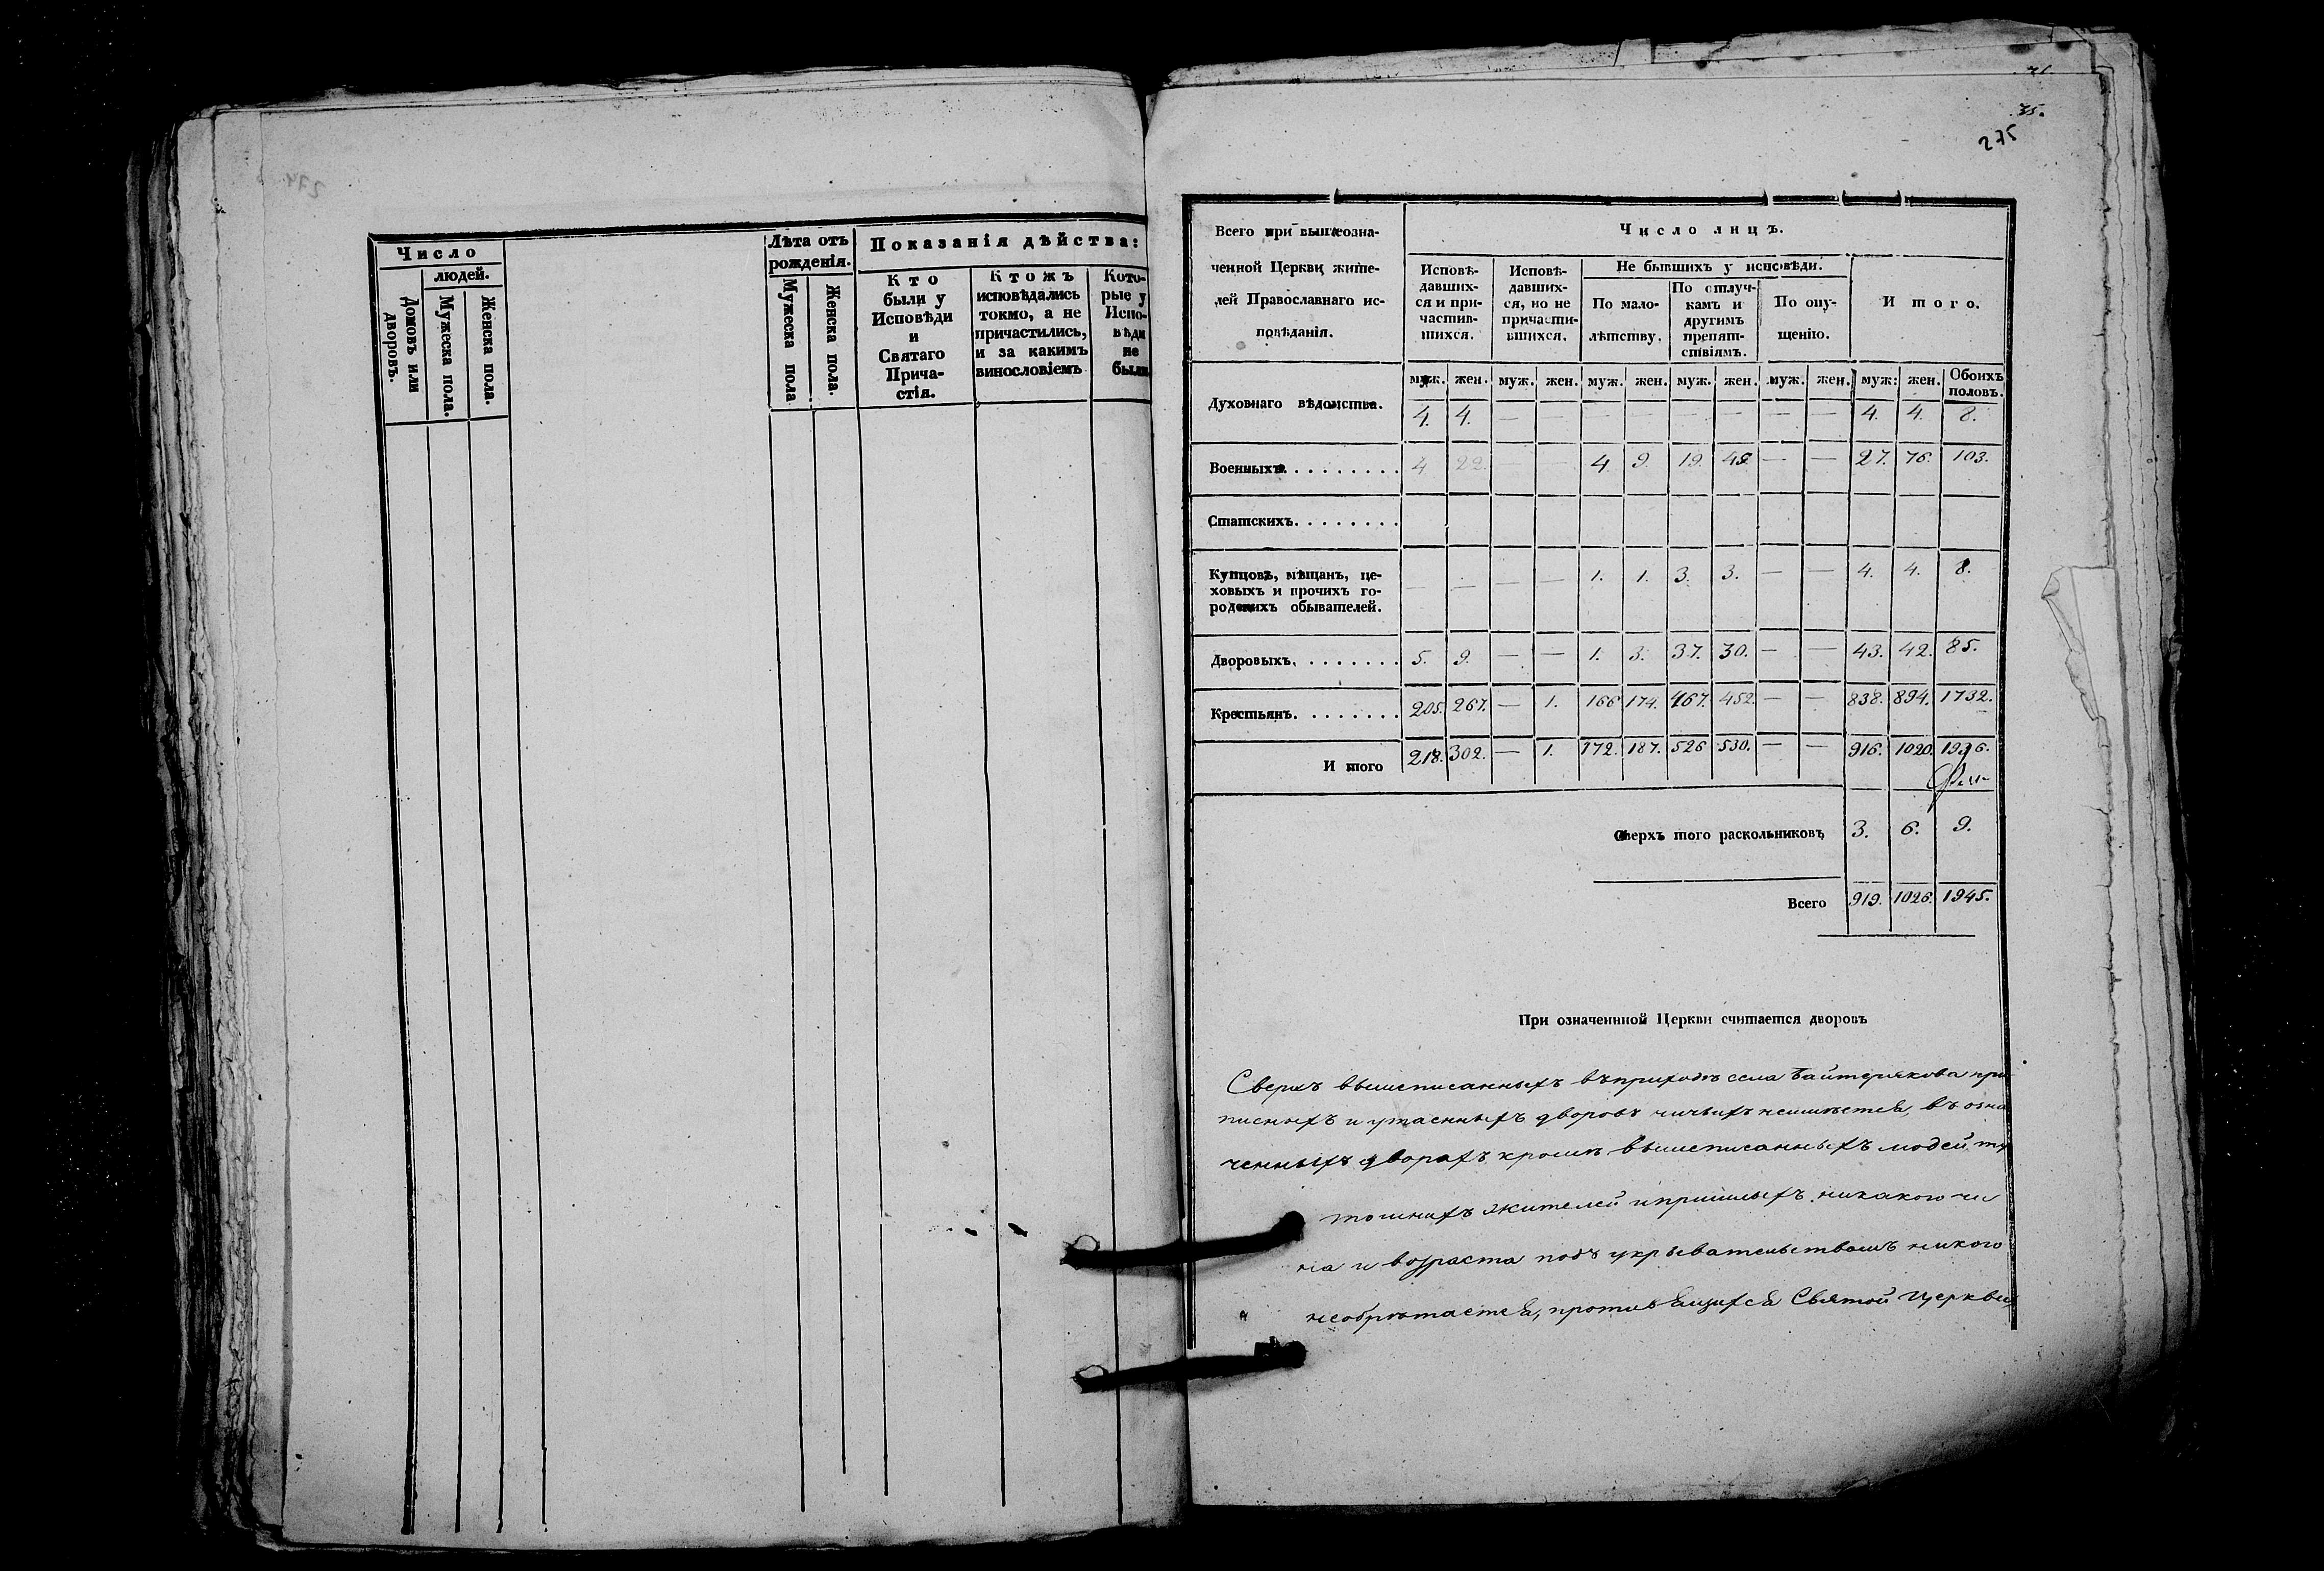 274
Число
людей.
Домовъ или дворовъ.
Мужеска пола.
Женска пола.
Лѣта отъ
рожденія.
Мужеска пола
Женска пола.
Показанія дѣйства:
Кто
были у
Исповѣди
и
Святаго
Прича-
стія.
Ктожъ
исповѣдались
токмо, а не
причастились,
и за какимъ
винословіемъ
Кото-
рые у
Испо-
вѣди
не
были
35.
275
Всего при вышеозна-
ченной Церкви жите-
лей Православнаго ис-
повѣданія.
Число лицъ.
Исповѣ-
давших-
ся и при-
частив-
шихся.
Исповѣ-
давших-
ся, но не
причасти-
вшихся.
Не бывшихъ у исповѣди.
По мало-
лѣтству.
По отлуч-
камъ и
другимъ
препят-
ствіямъ.
По опу-
щенію.
Итого.
муж. жен. муж. жен. муж. жен. муж. жен. муж. жен. муж: жен. Обоихъ половъ.
Духовнаго вѣдомства. 4. 4. — — — — — — — — 4. 4. 8.
Военныхъ. . . . . . . . . 4. 22. — — 4. 9. 19. 45. — — 27. 76. 103.
Статскихъ. . . . . . . .
Купцовъ, мѣщанъ, це-
ховыхъ и прочихъ го-
родскихъ обывателей. — — — — 1. 1. 3. 3. — — 4. 4. 8.
Дворовыхъ. . . . . . . . 5. 9. — — 1. 3. 37. 30. — — 43. 42. 85.
Крестьянъ. . . . . . . . 205. 267. — 1. 166 174. 467. 452. — — 838. 894. 1732.
Итого 218. 302. — 1. 172. 187. 526 530. — — 916. 1020. 1936.
Сверхъ того раскольниковъ 3. 6. 9.
Всего 919. 1026. 1945.
При означенниой Церкви считается дворовъ
Сверхъ вышеписанныхъ въ приходѣ села Байтерякова при
писныхъ и утаенныхъ дворовъ ничьихъ неимѣется, въ озна
ченныхъ дворахъ кромѣ вышеписанныхъ людей ту
тошнихъ жителей и пришлыхъ никакого чи
на и возраста подъ укрывательствомъ никого
необрѣтается, противящихся Святой Церкви